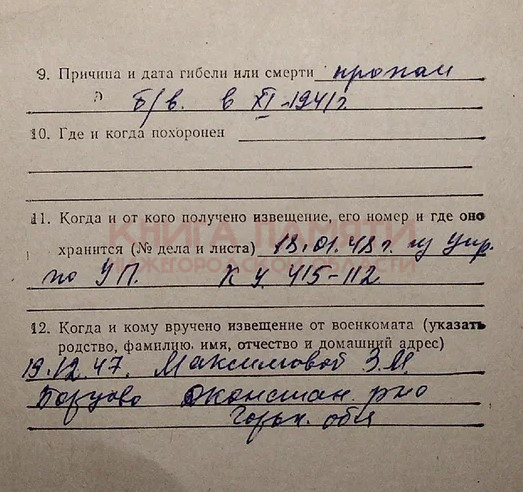 9. Причина и дата гибели или смерти пропал
б/в. в XI-1941г.
10. Где и когда похоронен
11. Когда и от кого получено извещение, его номер и где оно
КНИГА ПАМЯТИ
хранится (№ дела и листа) 18.01.48 г. из Упр.
НИЖЕГОРОДСКОЙ ОБЛАСТИ
по УП. К у. 415-112
12. Когда и кому вручено извещение от военкомата (указать
родство, фамилию, имя, отчество и домашний адрес)
19.12.47. Максимовой З.М.
Борцово
Горьк. обл